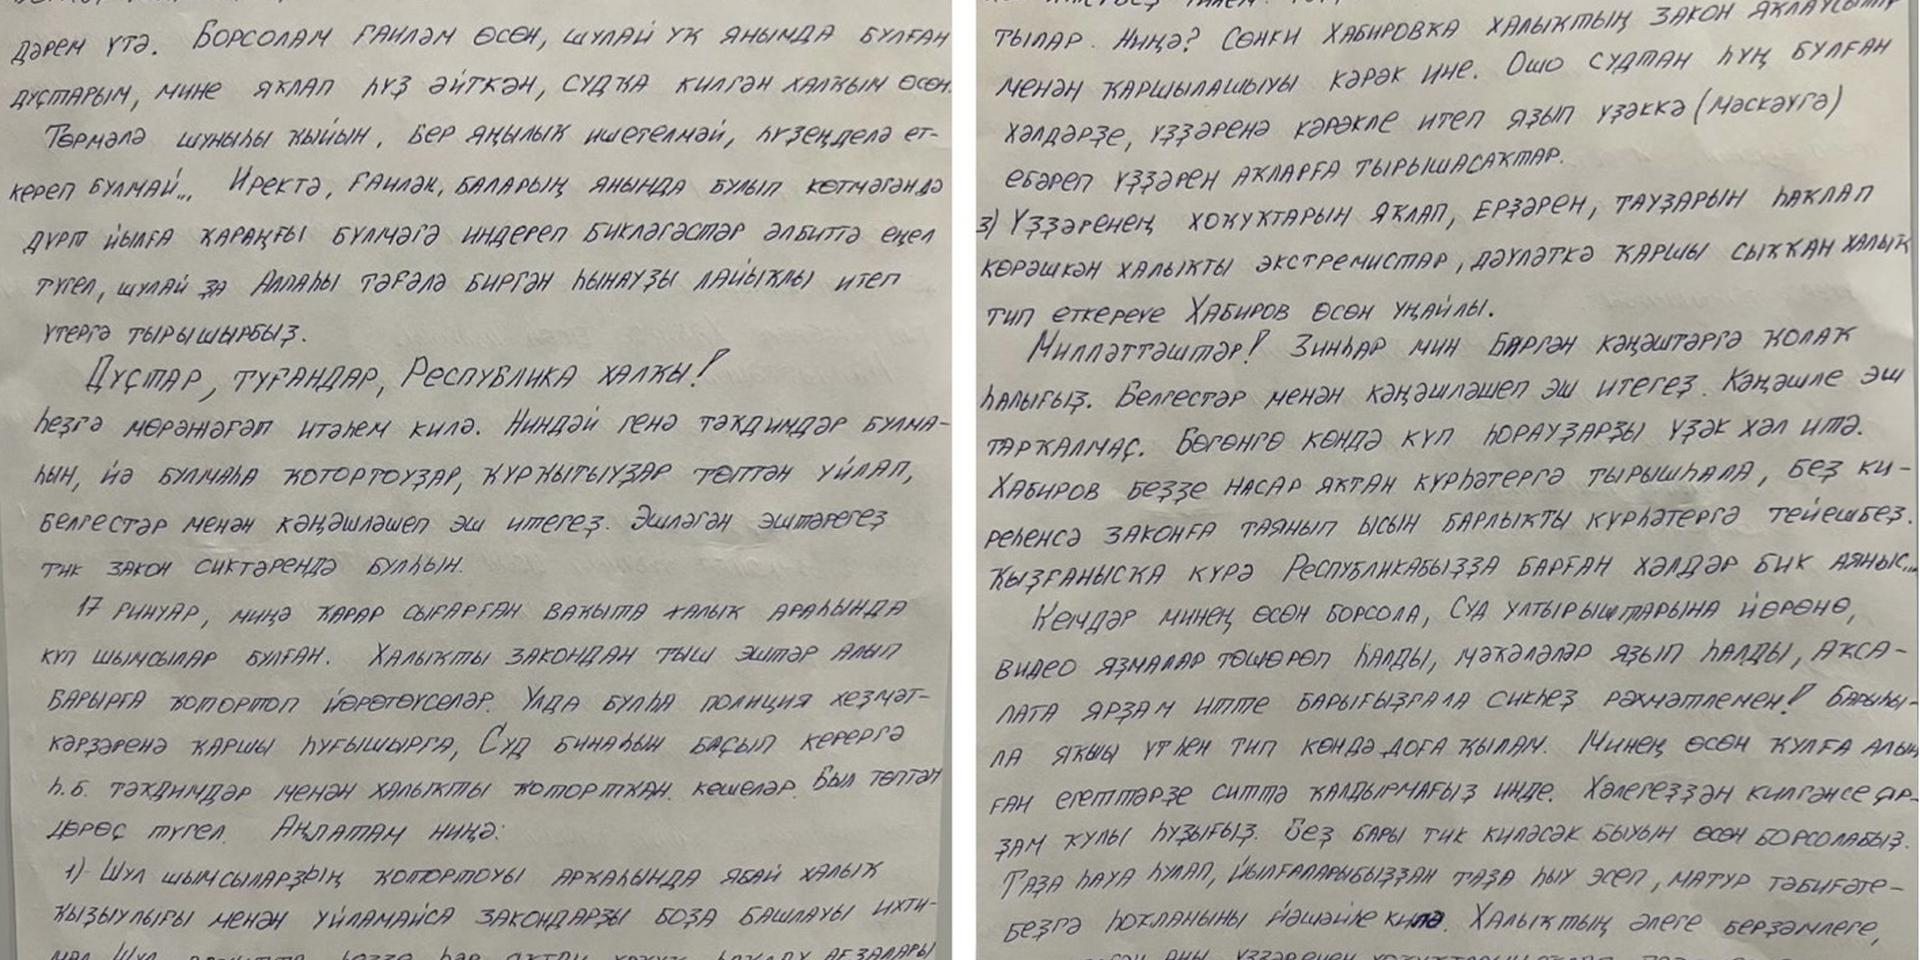 дәрем үтә. Борсолам ғаиләм өсөн, шулай ук янымда булған
дуҫтарым, мине яҡлап һүҙ әйткән, судҡа килгән халҡым өсөн.
Төрмәлә шуныһы ҡыйын, бер яңылыҡ ишетелмәй, һүҙеңделә ет-
кереп булмай... Иректә, ғаиләң, баларың янында булып көтмәгәндә
дүрт йылға ҡараңғы бүлмәгә индереп бикләгәстәр әлбиттә еңел
түгел, шулай ҙа Аллаһы тәғәлә биргән һынауҙы лайыҡлы итеп
үтергә тырышырбыҙ.
Дуҫтар, туғандар, Республика халҡы!
Һеҙгә мөрәжәғәт итәһем килә. Ниндәй генә тәҡдимдәр булма-
һын, йә булмаһа ҡотортоуҙар, ҡурҡытыуҙар төптән уйлап,
белгестәр менән кәңәшләшеп эш итегеҙ. Эшләгән эштәрегеҙ
тик закон сиктәрендә булһын.
17 ғинуар, миңә ҡарар сығарған ваҡытта халыҡ араһында
күп шымсылар булған. Халыҡты закондан тыш эштәр алып
барырға ҡотортоп йөрөтөүселәр. Улда булһа полиция хеҙмәт-
кәрҙәренә ҡаршы һуғышырға, Суд бинаһын баҫып керергә
һ.б. тәҡдимдәр менән халыҡты ҡотортҡан кешеләр. Был төптән
дөрөҫ түгел. Аңлатам ниңә:
1) Шул шымсыларҙың ҡотортоуы арҡаһында ябай халыҡ
ҡыҙыулығы менән уйламайса закондарҙы боҙа башлауы ихти-
мал. Шул һеҙҙе һәр яҡтан ағзалары
тылар. Ниңә? Сөнки Хабировҡа халыҡтың закон яҡлаусылар
менән ҡаршылашыуы кәрәк ине. Ошо судтан һуң булған
хәлдәрҙе, үҙҙәренә кәрәкле итеп яҙып үҙәккә (Мәскәүгә)
ебәреп үҙҙәрен аҡларға тырышасаҡтар.
3) Үҙҙәренең хоҡуҡтарын яҡлап, ерҙәрен, тауҙарын һаҡлап
көрәшкән халыҡты экстремистар, дәүләткә ҡаршы сыҡҡан халыҡ
тип еткереүе Хабиров өсөн уңайлы.
Милләттәштәр! Зинһар мин биргән кәңәштәргә ҡолаҡ
һалығыҙ. Белгестәр менән кәңәшләшеп эш итегеҙ. Кәңәшле эш
тарҡалмаҫ. Бөгөнгө көндә күп һорауҙарҙы үҙәк хәл итә.
Хабиров беҙҙе насар яҡтан күрһәтергә тырышһала, беҙ ки-
реһенсә законға таянып ысын барлыҡты күрһәтергә тейешбеҙ.
Ҡыҙғанысҡа күрә Республикабыҙҙа барған хәлдәр бик аяныс...
Кемдәр минең өсөн борсола, Суд ултырыштарына йөрөнө,
видео яҙмалар төшөрөп һалды, мәҡәләләр яҙып һалды, аҡса-
лата ярҙам итте барығыҙғала сикһеҙ рәхмәтлемен! Барыһы-
ла яҡшы үтһен тип көндә доға ҡылам. Минең өсөн ҡулға алын-
ған егеттәрҙе ситтә ҡалдырмағыҙ инде. Хәлегеҙҙән килгәнсе яр-
ҙам ҡулы һуҙығыҙ. Беҙ бары тик киләсәк быуын өсөн борсолабыҙ.
Таҙа һауа һулап, йылғаларыбыҙҙан таҙа һыу эсеп, матур тәбиғәте-
беҙгә һоҡланыны йәшәйһе килә. Халыҡтың әлеге берҙәмлеге,
аны үҙҙәренең